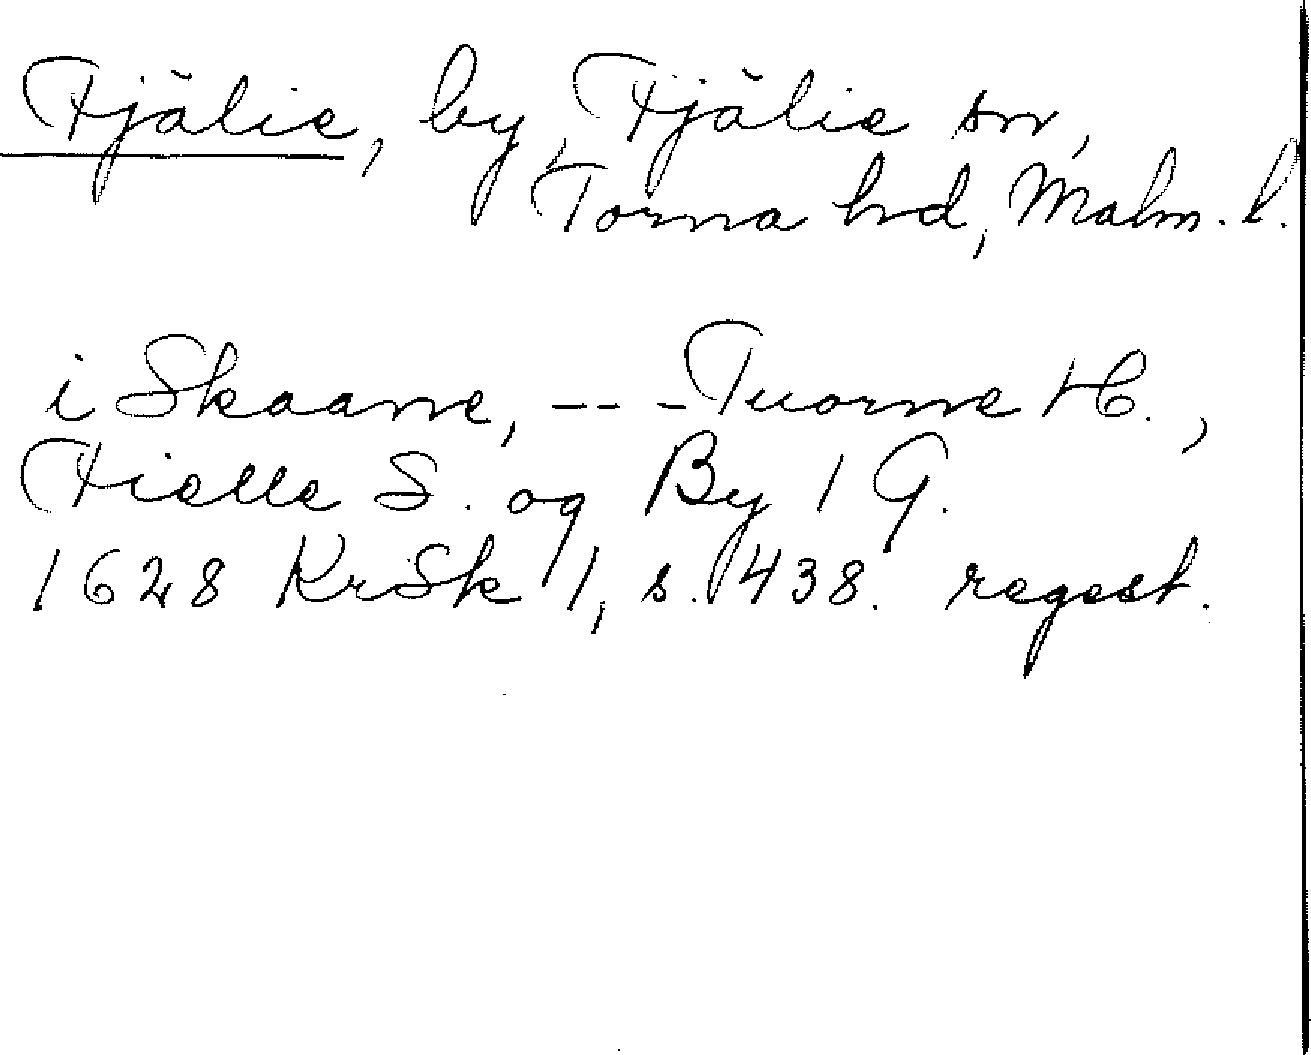 Fjälie, by, Fjälie sn,
Torna hd, Malm. l.
i Skaane, --- Tuorne H.,
Fielle S. og By 1 G.
1628 KrSk 1, s. 438. regest.